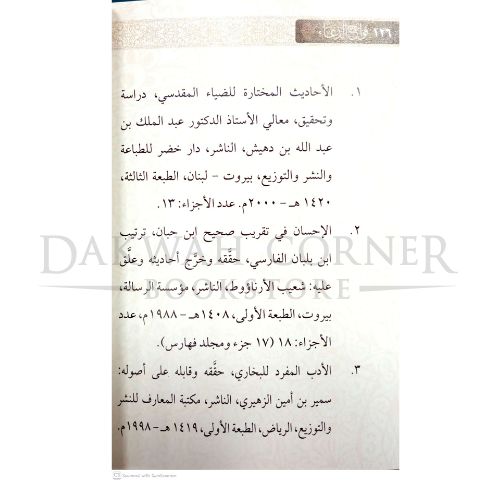 ١٢٦
١. الأحاديث المختارة للضياء المقدسي، دراسة
وتحقيق، معالي الأستاذ الدكتور عبد الملك بن
عبد الله بن دهيش، الناشر، دار خضر للطباعة
والنشر والتوزيع، بيروت – لبنان، الطبعة الثالثة،
١٤٢٠ هـ – ٢٠٠٠م. عدد الأجزاء: ١٣.
٢. الإحسان في تقريب صحيح ابن حبان، ترتيب
ابن بلبان الفارسي، حقَّقه وخرَّج أحاديثه وعلَّق
عليه: شعيب الأرناؤوط، الناشر، مؤسسة الرسالة،
بيروت، الطبعة الأولى، ١٤٠٨هـ – ١٩٨٨م، عدد
الأجزاء: ١٨ (١٧ جزء ومجلد فهارس).
٣. الأدب المفرد للبخاري، حقَّقه وقابله على أصوله:
سمير بن أمين الزهيري، الناشر، مكتبة المعارف للنشر
والتوزيع، الرياض، الطبعة الأولى، ١٤١٩هـ – ١٩٩٨م.
DAKWAH CORNER
BOOKSTORE
Scanned with CamScanner